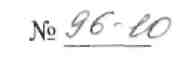 № 96-10